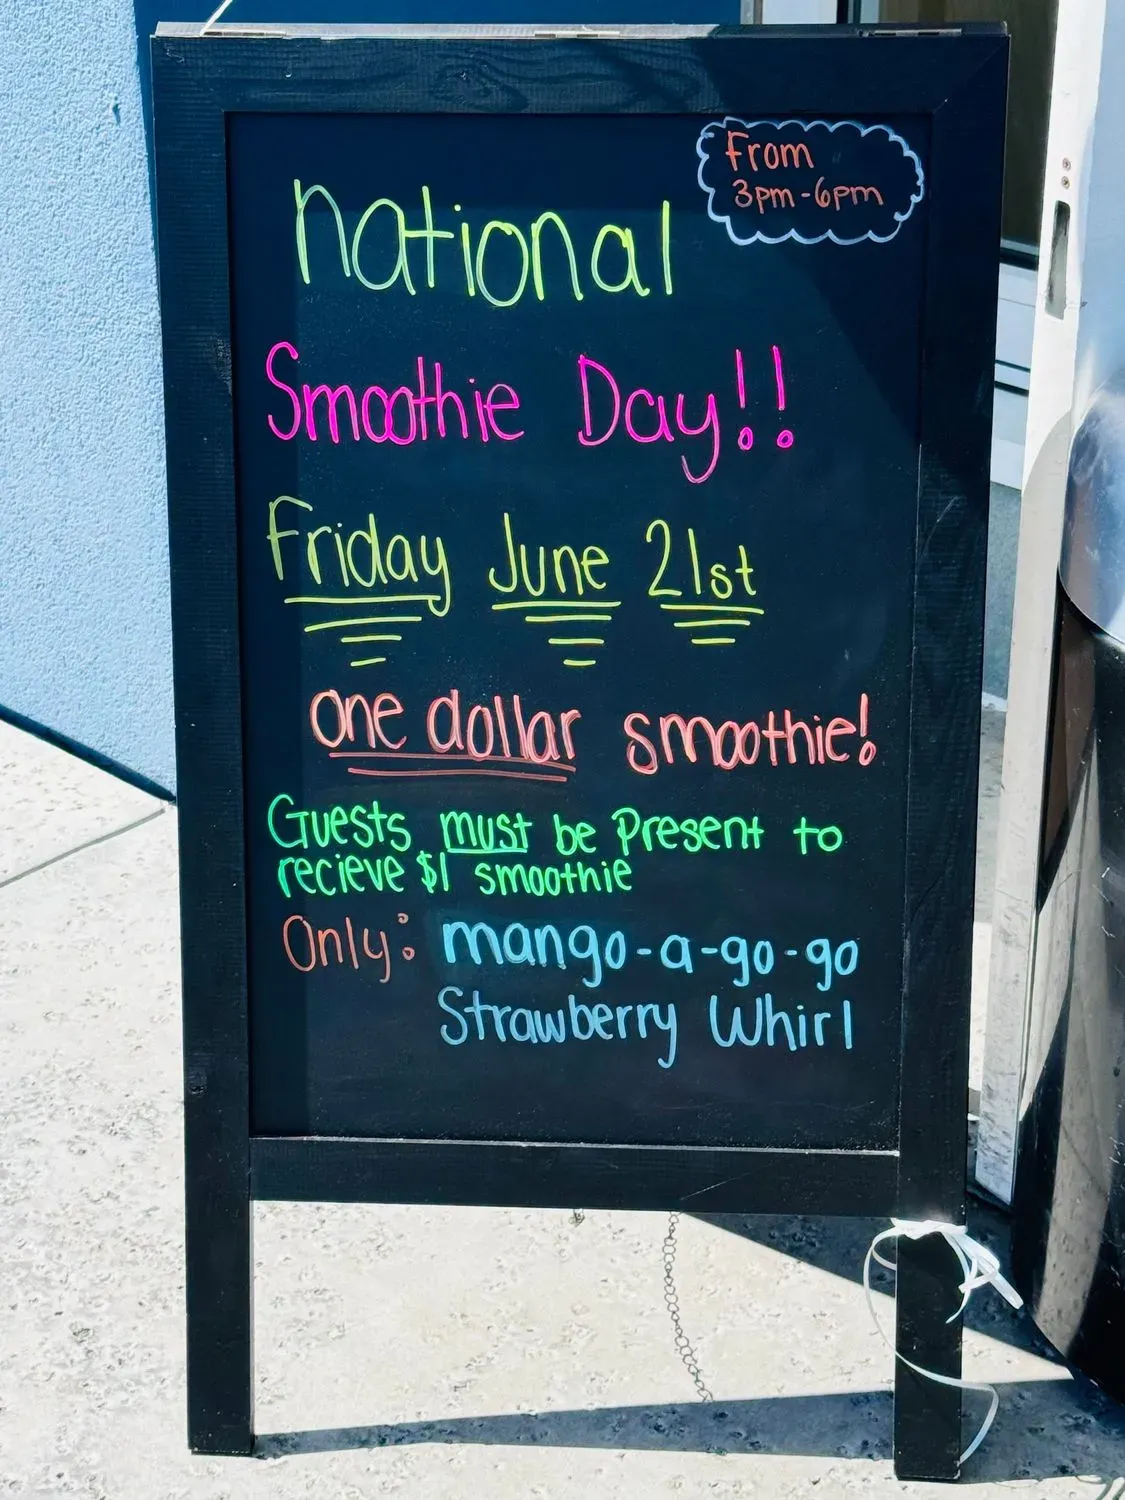 From
3pm-6pm
national
Smoothie Day!!
Friday June 21st
one dollar smoothie!
Guests must be Present to
recieve $1 smoothie
Only: mango-a-go-go
Strawberry Whirl